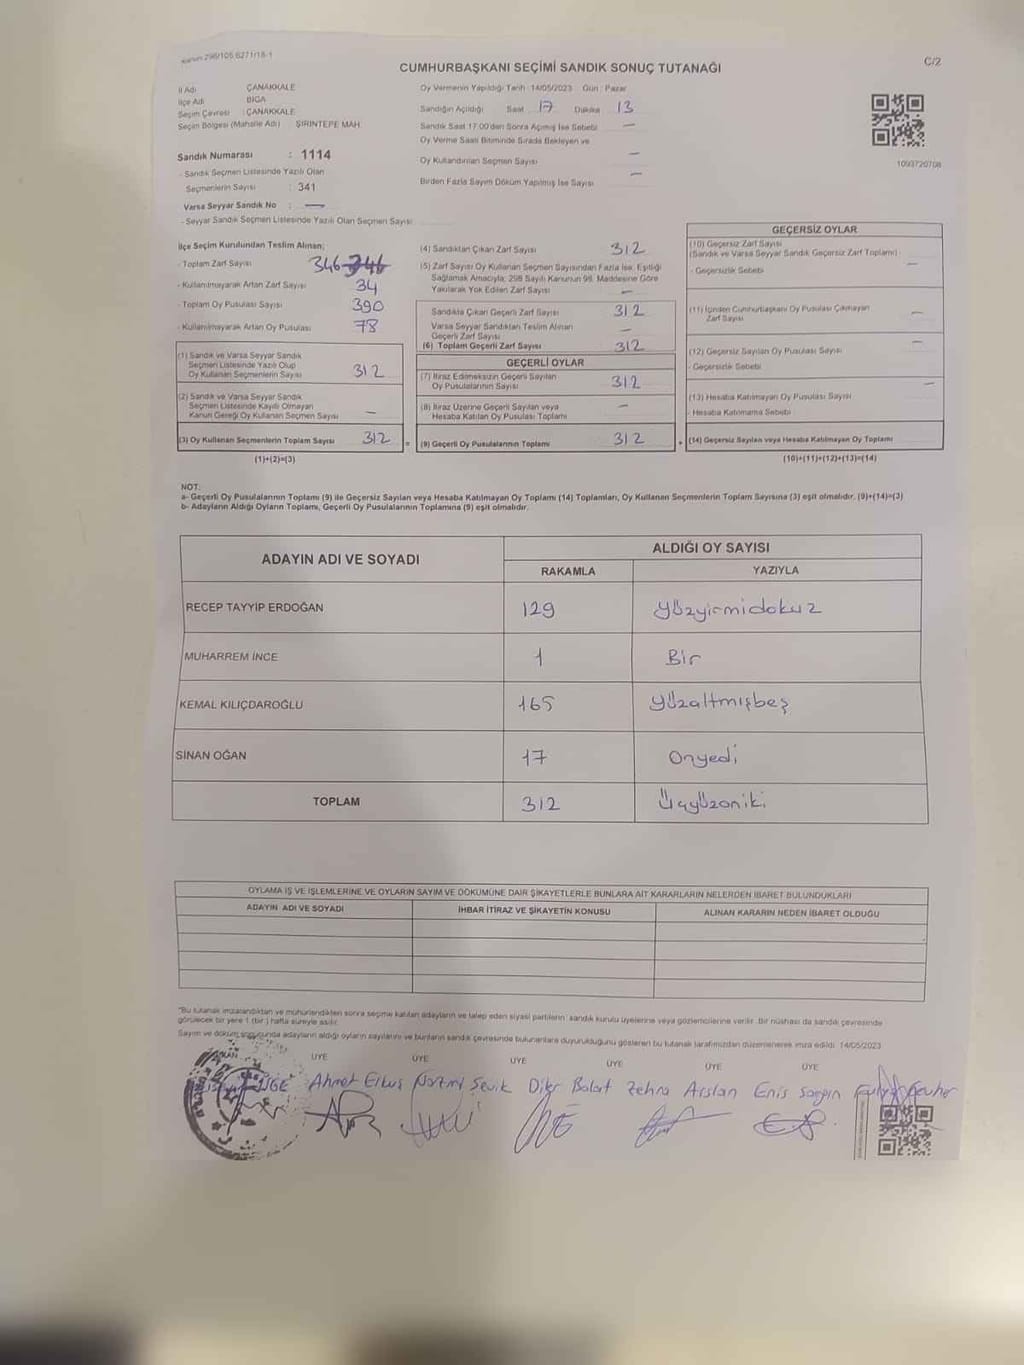 Kanun 298/105 6271/18-1
CUMHURBAŞKANI SEÇİMİ SANDIK SONUÇ TUTANAĞI
C/2
İl Adı ÇANAKKALE
İlçe Adı BİGA
Seçim Çevresi : ÇANAKKALE
Seçim Bölgesi (Mahalle Adı) ŞİRİNTEPE MAH.
Sandık Numarası : 1114
- Sandık Seçmen Listesinde Yazılı Olan
Seçmenlerin Sayısı : 341
Varsa Seyyar Sandık No : —
- Seyyar Sandık Seçmen Listesinde Yazılı Olan Seçmen Sayısı
Oy Vermenin Yapıldığı Tarih : 14/05/2023 Gün : Pazar
Sandığın Açıldığı Saat 17 Dakika 13
Sandık Saat 17:00'den Sonra Açılmış İse Sebebi —
Oy Verme Saati Bitiminde Sırada Bekleyen ve
Oy Kullandırılan Seçmen Sayısı —
Birden Fazla Sayım Döküm Yapılmış İse Sayısı —
1093720708
İlçe Seçim Kurulundan Teslim Alınan;
- Toplam Zarf Sayısı 346 346
- Kullanılmayarak Artan Zarf Sayısı 34
- Toplam Oy Pusulası Sayısı 390
- Kullanılmayarak Artan Oy Pusulası 78
(1) Sandık ve Varsa Seyyar Sandık
Seçmen Listesinde Yazılı Olup
Oy Kullanan Seçmenlerin Sayısı 312
(2) Sandık ve Varsa Seyyar Sandık
Seçmen Listesinde Kayıtlı Olmayan
Kanun Gereği Oy Kullanan Seçmen Sayısı —
(3) Oy Kullanan Seçmenlerin Toplam Sayısı 312 =
(1)+(2)=(3)
(4) Sandıktan Çıkan Zarf Sayısı 312
(5) Zarf Sayısı Oy Kullanan Seçmen Sayısından Fazla İse, Eşitliği
Sağlamak Amacıyla; 298 Sayılı Kanunun 98. Maddesine Göre
Yakılarak Yok Edilen Zarf Sayısı —
Sandıkta Çıkan Geçerli Zarf Sayısı 312
Varsa Seyyar Sandıktan Teslim Alınan
Geçerli Zarf Sayısı —
(6) Toplam Geçerli Zarf Sayısı 312
GEÇERLİ OYLAR
(7) İtiraz Edilmeksizin Geçerli Sayılan
Oy Pusulalarının Sayısı 312
(8) İtiraz Üzerine Geçerli Sayılan veya
Hesaba Katılan Oy Pusulası Toplamı —
(9) Geçerli Oy Pusulalarının Toplamı 312 +
GEÇERSİZ OYLAR
(10) Geçersiz Zarf Sayısı
(Sandık ve Varsa Seyyar Sandık Geçersiz Zarf Toplamı) —
- Geçersizlik Sebebi
(11) İçinden Cumhurbaşkanı Oy Pusulası Çıkmayan
Zarf Sayısı —
(12) Geçersiz Sayılan Oy Pusulası Sayısı —
- Geçersizlik Sebebi
(13) Hesaba Katılmayan Oy Pusulası Sayısı —
- Hesaba Katılmama Sebebi
(14) Geçersiz Sayılan veya Hesaba Katılmayan Oy Toplamı
(10)+(11)+(12)+(13)=(14)
NOT:
a- Geçerli Oy Pusulalarının Toplamı (9) ile Geçersiz Sayılan veya Hesaba Katılmayan Oy Toplamı (14) Toplamları, Oy Kullanan Seçmenlerin Toplam Sayısına (3) eşit olmalıdır. (9)+(14)=(3)
b- Adayların Aldığı Oyların Toplamı, Geçerli Oy Pusulalarının Toplamına (9) eşit olmalıdır.
ADAYIN ADI VE SOYADI
ALDIĞI OY SAYISI
RAKAMLA YAZIYLA
RECEP TAYYİP ERDOĞAN 129 Yüzyirmidokuz
MUHARREM İNCE 1 Bir
KEMAL KILIÇDAROĞLU 165 Yüzaltmışbeş
SİNAN OĞAN 17 Onyedi
TOPLAM 312 Üçyüzoniki
OYLAMA İŞ VE İŞLEMLERİNE VE OYLARIN SAYIM VE DÖKÜMÜNE DAİR ŞİKAYETLERLE BUNLARA AİT KARARLARIN NELERDEN İBARET BULUNDUKLARI
ADAYIN ADI VE SOYADI İHBAR İTİRAZ VE ŞİKAYETİN KONUSU ALINAN KARARIN NEDEN İBARET OLDUĞU
"Bu tutanak imzalandıktan ve mühürlendikten sonra seçime katılan adayların ve talep eden siyasi partilerin sandık kurulu üyelerine veya gözlemcilerine verilir. Bir nüshası da sandık çevresinde
görülecek bir yere 1 (bir) hafta süreyle asılır.
Sayım ve döküm sonucunda adayların aldığı oyların sayılarını ve bunların sandık çevresinde bulunanlara duyurulduğunu gösteren bu tutanak tarafımızdan düzenlenerek imza edildi. 14/05/2023
ÜYE ÜYE ÜYE ÜYE ÜYE ÜYE
Ahmet Erkuş Nazmi Şevik Diler Bolat Zehra Arslan Enis Saygın